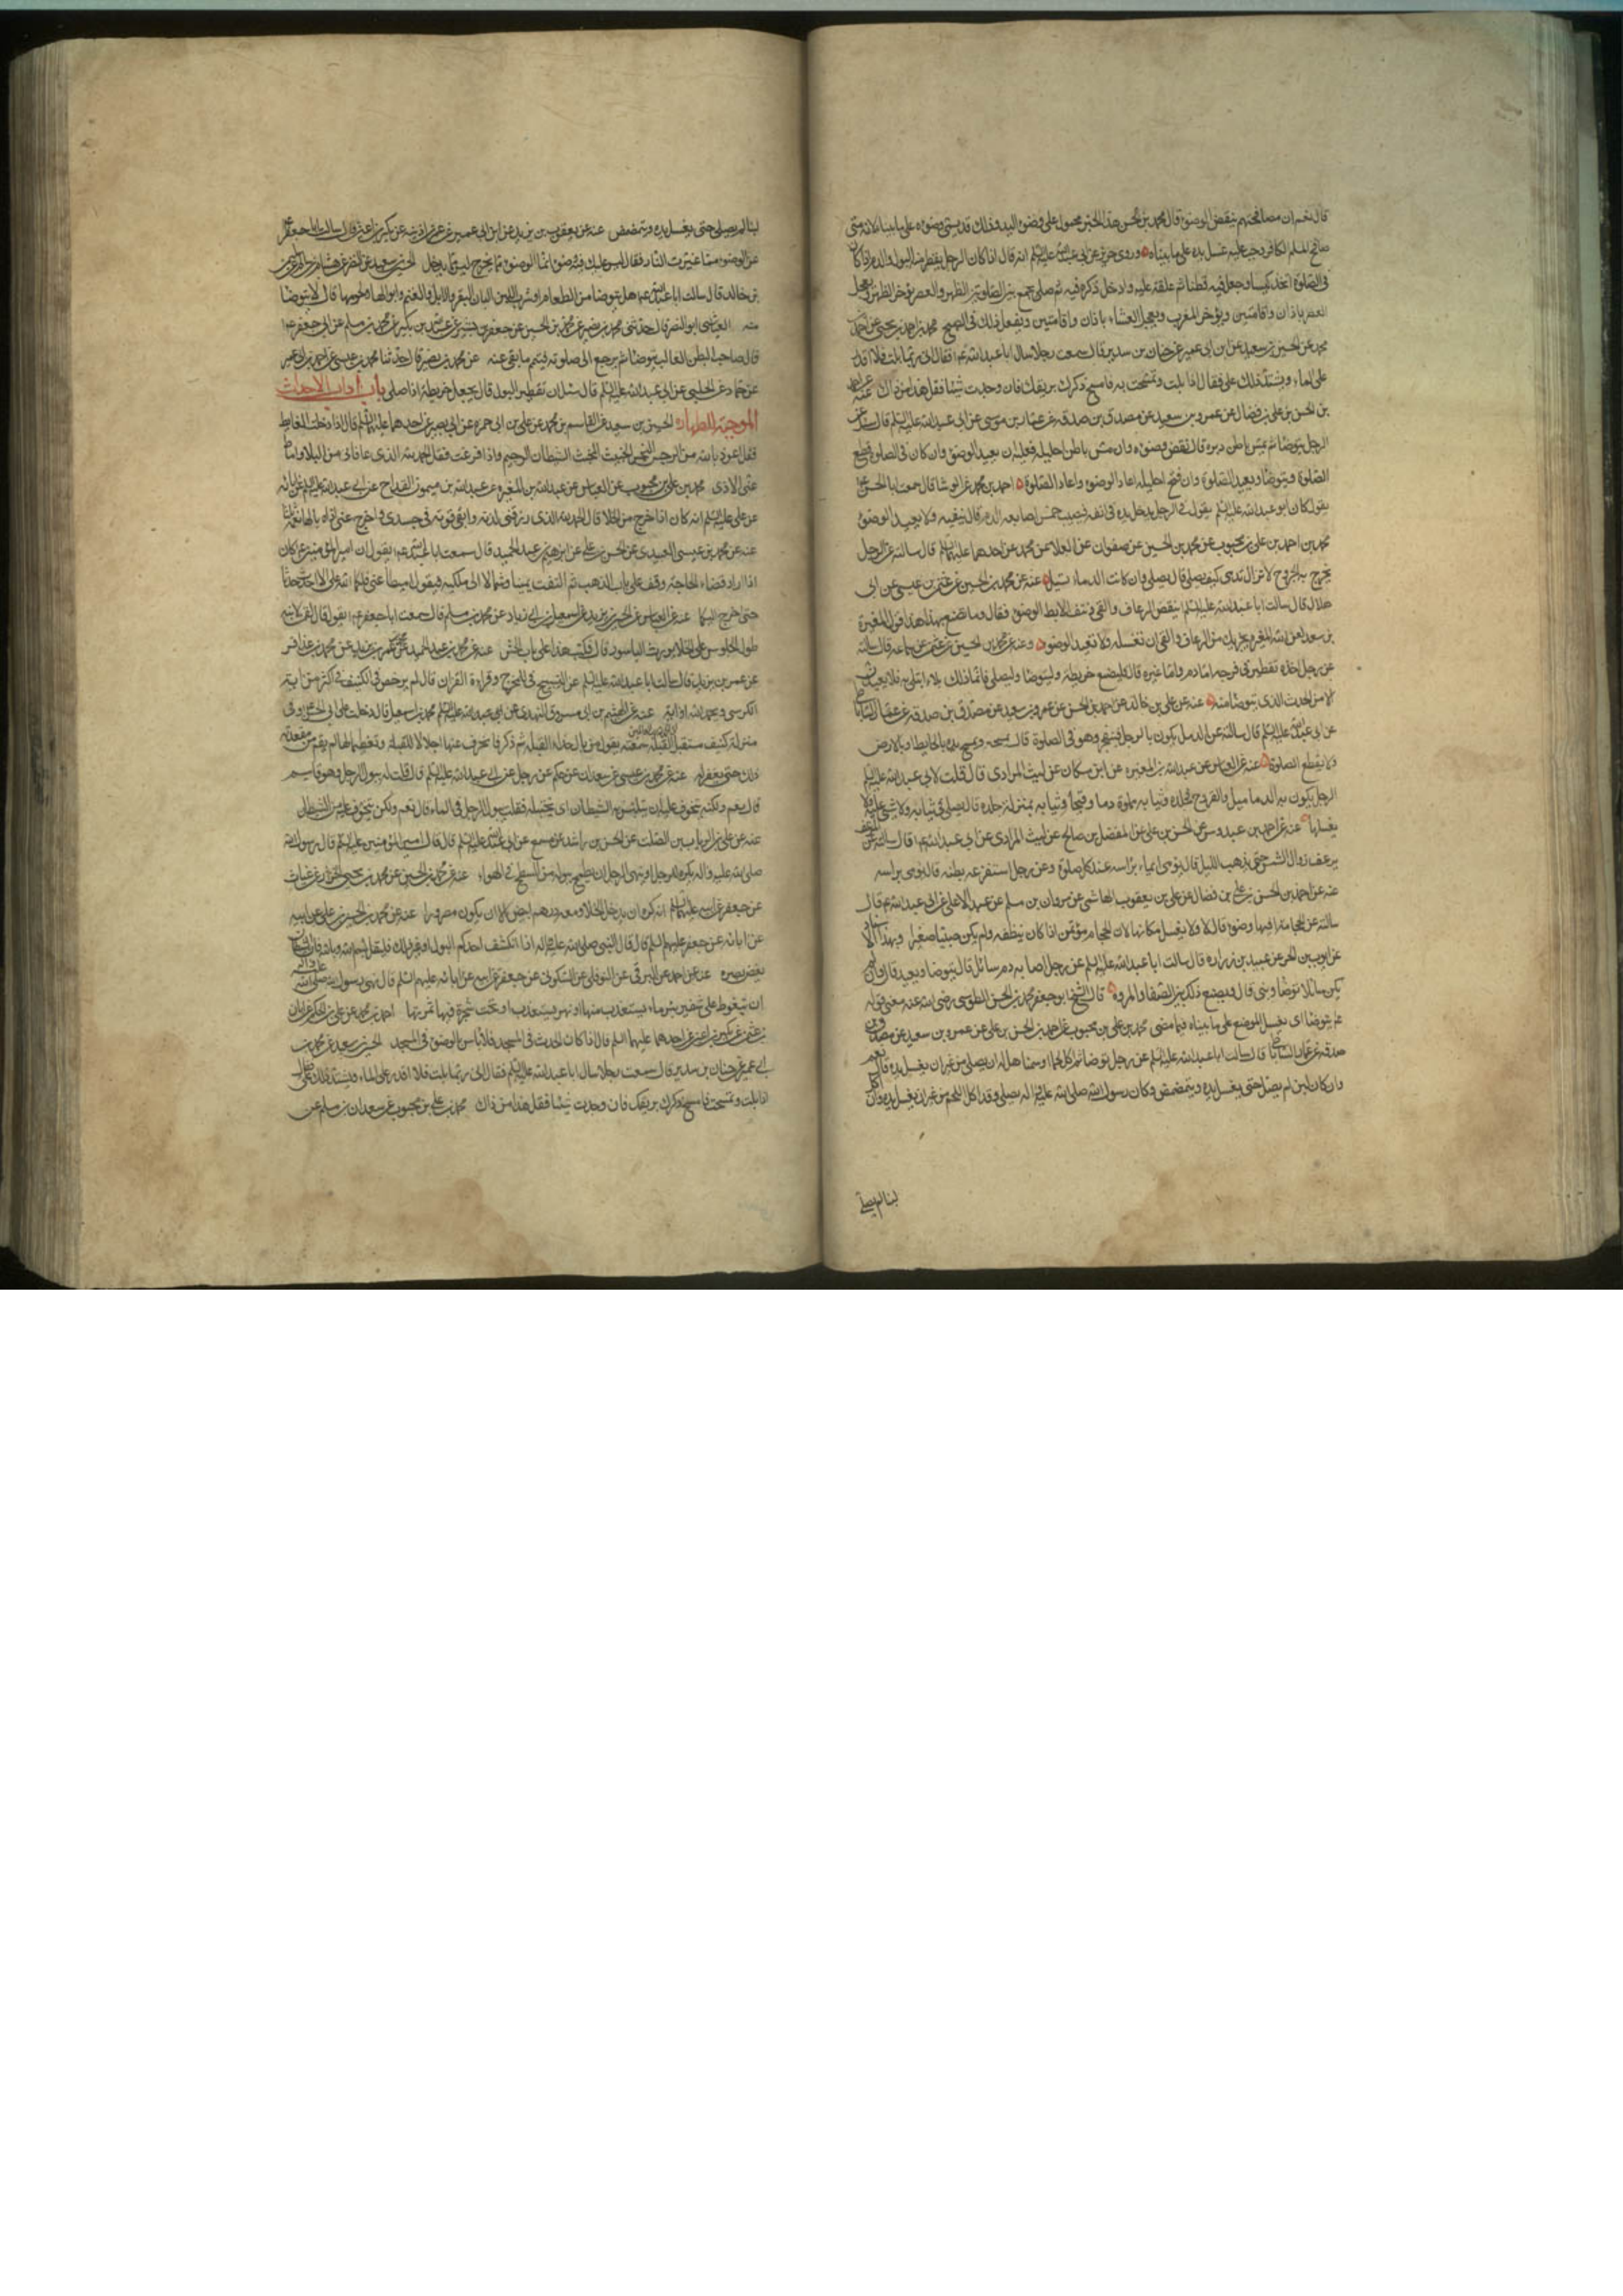 قال نعم ان مصافحتهم ينقض الوضوء قال محمد بن الحسن هذا الخبر محمول على وضوء اليد وذلك قد يسمى وضوء على ما بيناه لانه متى
صافح المسلم الكافر وجب عليه غسل يده على ما بيناه وروى حريز عن ابى عبدالله عليه السلم انه قال اذا كان الرجل يقطر منه البول والدم اذا كان
فى الصلوة اتخذ كيسا وجعل فيه قطنا ثم علقه عليه وادخل ذكره فيه ثم صلى يجمع بين الصلوتين الظهر والعصر يؤخر الظهر ويعجل
العصر باذان واقامتين ويؤخر المغرب ويعجل العشاء باذان واقامتين ويفعل ذلك فى الصبح محمد بن احمد بن يحيى عن احمد بن
محمد عن الحسين بن سعيد عن ابن ابى عمير عن حنان بن سدير قال سمعت رجلا سال ابا عبدالله ع فقال انى ربما بلت فلا اقدر
على الماء ويشتد ذلك على فقال اذا بلت وتمسحت به فامسح ذكرك بريقك فان وجدت شيئا فقل هذا من ذاك
بن الحسن بن على بن فضال عن عمرو بن سعيد عن مصدق بن صدقه عن عمار بن موسى عن ابى عبدالله عليه السلم قال سئل عن
الرجل يتوضا ثم يمس باطن دبره قال نقض وضوءه وان مس باطن احليله فعليه ان يعيد الوضوء وان كان فى الصلوة قطع
الصلوة ويتوضا ويعيد الصلوة وان فتح احليله اعاد الوضوء واعاد الصلوة احمد بن محمد عن الوشا قال سمعت ابا الحسن ع
يقول كان ابو عبدالله عليه السلم يقول فى الرجل يدخل يده فى انفه فيصيب خمس اصابعه الدم قال ينقيه ولا يعيد الوضوء
محمد بن احمد بن على بن محبوب عن محمد بن الحسين عن صفوان عن العلا عن محمد عن احدهما عليهما السلم قال سالته عن الرجل
يخرج به القروح لا تزال تدمى كيف يصلى قال يصلى وان كانت الدماء تسيل عنه عن محمد بن الحسين عن عثمن بن عيسى عن ابى
هلال قال سالت ابا عبدالله عليه السلم اينقض الرعاف والقى ونتف الابط الوضوء فقال وما تصنع بهذا هذا قول المغيرة
بن سعيد لعن الله المغيره يجزيك من الرعاف والقى ان تغسله ولا تعيد الوضوء وعنه عن محمد بن الحسين عن عثمن عن سماعه قال سالته
عن رجل اخذه تقطير فى فرجه اما دم واما غيره قال فليضع خريطة وليتوضا وليصلى فانما ذلك بلاء ابتلى به فلا يعيدن
الا من الحدث الذى يتوضا منه عنه عن على بن خالد عن احمد بن الحسن عن عمرو بن سعيد عن مصدق بن صدقه عن عمار الساباطى
عن ابى عبدالله عليه السلم قال سالته عن الدمل يكون بالرجل فينفجر وهو فى الصلوة قال يمسحه ويمسح يده بالحايط او بالارض
ولا يقطع الصلوة عنه عن العباس عن عبدالله بن المغيره عن ابن مسكان عن ليث المرادى قال قلت لابى عبدالله عليه السلم
الرجل يكون به الدماميل والقروح فجلده وثيابه مملوة دما وقيحا وثيابه بمنزلة جلده قال يصلى فى ثيابه ولا شئ عليه ولا
يغسلها عنه عن احمد بن عبدوس عن الحسن بن على عن المفضل بن صالح عن ليث المرادى عن ابى عبدالله ع قال سالته عن
يرعف زوال الشمس حتى يذهب الليل قال يومى ايماء براسه عند كل صلوة وعن رجل استفرغه بطنه قال يومى براسه
عنه عن احمد بن الحسن بن على بن فضال عن على بن يعقوب الهاشمى عن مروان بن مسلم عن عبد الاعلى عن ابى عبدالله ع قال
سالته عن الحجامة افيها وضوء قال لا ولا يغسل مكانها لان الحجام مؤتمن اذا كان ينظفه ولم يكن صبيا صغيرا وبهذا الاسناد
عن ايوب بن الحر عن عبيد بن زراره قال سالت ابا عبدالله عليه السلم عن رجل اصابه دم سائل قال يتوضا ويعيد قال وان لم
يكن سائلا توضا وبنى قال ويصنع ذلك بين الصفا والمروه قال الشيخ ابو جعفر محمد بن الحسن الطوسى رضى الله عنه معنى قوله
ع يتوضا اى يغسل الموضع على ما بيناه فيما مضى محمد بن على بن محبوب عن احمد بن الحسن بن على عن عمرو بن سعيد عن مصدق بن
صدقه عن عمار الساباطى قال سالت ابا عبدالله عليه السلم عن رجل توضا ثم اكل لحما او سمنا هل له ان يصلى من غير ان يغسل يده قال نعم
وان كان لبن لم يصل حتى يغسل يده ويتمضمض وكان رسول الله صلى الله عليه واله يصلى وقد اكل اللحم من غير ان يغسل يده وان اكل
لبنا لم يصلى
لبنا لم يصلى حتى يغسل يده ويتمضمض عنه عن يعقوب بن يزيد عن ابن ابى عمير عن عمر بن اذينه عن بكير بن اعين قال سالت ابا جعفر ع
عن الوضوء مما غيرت النار فقال ليس عليك فيه وضوء انما الوضوء مما يخرج ليس مما يدخل الحسين بن سعيد عن النضر عن هشام
بن خالد قال سالت ابا عبدالله ع هل يتوضا من الطعام او شرب اللبن البان البقر والابل والغنم وابوالها ولحومها قال لا يتوضا
منه العياشى ابو النضر قال حدثنى محمد بن نصير عن محمد بن الحسين عن جعفر بن بشير عن عبدالله بن بكير عن محمد بن مسلم عن ابى جعفر ع
قال صاحب البطن الغالب يتوضا ثم يرجع الى صلوته فيتم ما بقى عنه عن محمد بن نصير قال حدثنا محمد بن عيسى عن احمد بن ابى عمير
عن حماد عن الحلبى عن ابى عبدالله عليه السلم قال سئل عن تقطير البول قال يجعل خريطة اذا صلى باب اداب الاحداث
الموجبة للطهارة الحسين بن سعيد عن القاسم بن محمد عن على بن ابى حمزه عن ابى بصير عن احدهما عليهما السلم قال اذا دخلت الغايط
فقل اعوذ بالله من الرجس النجس الخبيث المخبث الشيطان الرجيم واذا فرغت فقل الحمد لله الذى عافانى من البلا واماط
عنى الاذى محمد بن على بن محبوب عن العباس عن عبدالله بن المغيره عن عبدالله بن ميمون القداح عن ابى عبدالله عليه السلم عن ابائه
عن على عليه السلم انه كان اذا خرج من الخلا قال الحمد لله الذى رزقنى لذته وابقى قوته فى جسدى واخرج عنى اذاه يالها نعمة ثلاثا
عنه عن محمد بن عيسى العبيدى عن الحسن بن على عن ابرهيم بن عبد الحميد قال سمعت ابا عبدالله ع يقول ان امير المؤمنين ع كان
اذا اراد قضاء الحاجة وقف على باب المذهب ثم التفت يمينا وشمالا الى ملكيه فيقول اميطا عنى فلكما الله على ان لا احدث حدثا
حتى اخرج اليكما عنه عن العباس عن الحسين بن يزيد عن اسمعيل بن ابى زياد عن محمد بن مسلم قال سمعت ابا جعفر ع يقول قال لقمن لابنه
طول الجلوس على الخلا يورث الباسور قال فكتب هذا على باب الحش عنه عن محمد بن عبد الحميد عن محمد بن عمر بن يزيد عن محمد بن عذافر
عن عمر بن يزيد قال سالت ابا عبدالله عليه السلم عن التسبيح فى المخرج وقراءة القران قال لم يرخص فى الكنيف فى اكثر من اية
الكرسى ويحمد الله او اية عنه عن الهيثم بن ابى مسروق النهدى عن ابى عبدالله عليه السلم محمد بن اسمعيل قال دخلت على ابى الحسن وفى
منزله كنيف مستقبل القبلة سمعته يقول من بال حذاء القبلة ثم ذكر فانحرف عنها اجلالا للقبلة وتعظيما لها لم يقم من مقعده
ذلك حتى يغفر له عنه عن محمد بن عيسى عن سعدان عن حكم عن رجل عن ابى عبدالله عليه السلم قال قلت له يبول الرجل وهو قايم
قال نعم ولكنه يتخوف عليه ان يلتبس به الشيطان اى يخبله فقلت يبول الرجل فى الماء قال نعم ولكن يتخوف عليه من الشيطان
عنه عن على بن الريان بن الصلت عن الحسن بن راشد عن مسمع عن ابى عبدالله عليه السلم قال قال امير المؤمنين عليه السلم قال رسول الله
صلى الله عليه واله يكره للرجل او ينهى الرجل ان يطمح ببوله من السطح فى الهواء عنه عن محمد بن الحسين عن محمد بن يحيى الخزاز عن غياث
عن جعفر عن ابيه عليهما السلم انه كره ان يدخل الخلا ومعه درهم ابيض الا ان يكون مصرورا عنه عن محمد بن الحسين عن على عن ابيه
عن ابائه عن جعفر عليهم السلم قال قال النبى صلى الله عليه واله اذا انكشف احدكم لبول او غير ذلك فليقل بسم الله فان الشيطان
يغض بصره عنه عن احمد عن البرقى عن النوفلى عن السكونى عن جعفر عن ابيه عن ابائه عليهم السلم قال نهى رسول الله صلى الله عليه واله
ان يتغوط على شفير بئر ماء يستعذب منها او نهر يستعذب او تحت شجرة فيها ثمرتها احمد بن محمد عن على بن الحكم عن ابان
بن عثمن عن بكير بن اعين عن احدهما عليهما السلم قال اذا كان الحدث فى المسجد فلا باس بالوضوء فى المسجد الحسين بن سعيد عن محمد بن
ابى عمير عن حنان بن سدير قال سمعت رجلا سال ابا عبدالله عليه السلم فقال انى ربما بلت فلا اقدر على الماء ويشتد ذلك على فقال
اذا بلت وتمسحت فامسح ذكرك بريقك فان وجدت شيئا فقل هذا من ذاك محمد بن على بن محبوب عن سعدان بن مسلم عن